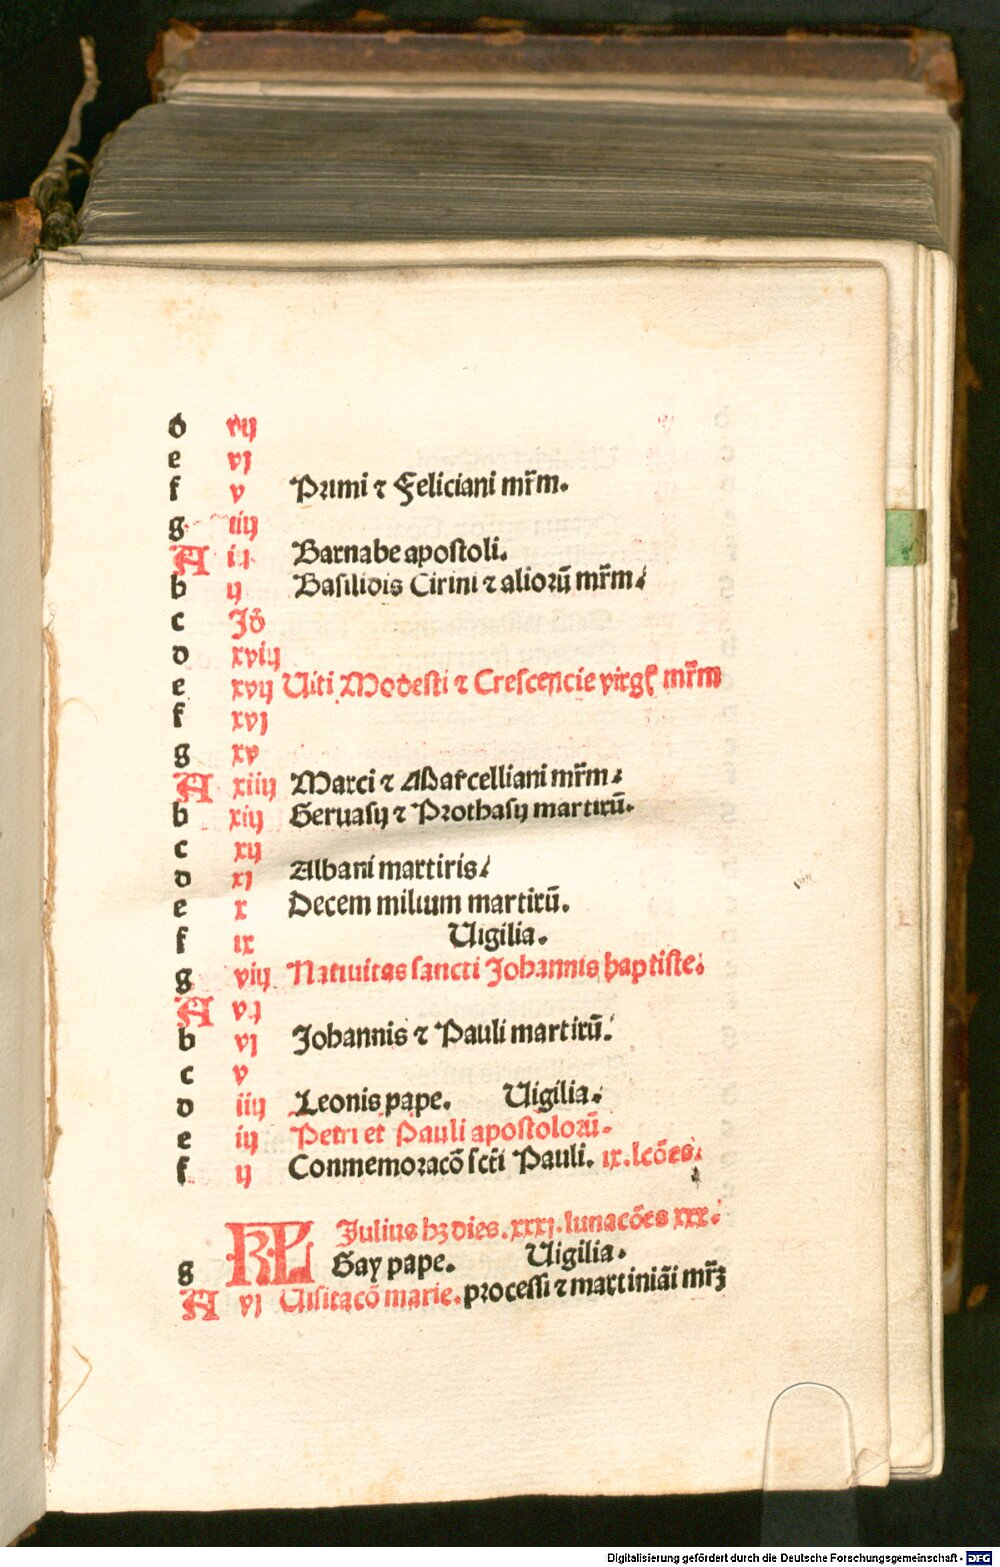 d vij
e vj
f v Primi ⁊ Feliciani mr̃m.
g iiij
A iij Barnabe apostoli.
b ij Basilidis Cirini ⁊ aliorũ mr̃m.
c Jd
d xviij
e xvij Uiti Modesti ⁊ Crescencie virgĩ mr̃m
f xvj
g xv
A xiiij Marci ⁊ Marcelliani mr̃m.
b xiij Geruasij ⁊ Prothasij martirũ.
c xij
d xj Albani martiris.
e x Decem milium martirũ.
f ix Uigilia.
g viij Natiuitas sancti Johannis baptiste.
A vij
b vj Johannis ⁊ Pauli martirũ.
c v
d iiij Leonis pape. Uigilia.
e iij Petri et Pauli apostolorũ.
f ij Conmemoracõ scti Pauli. ix. lcões.
KL Julius hꝫ dies. xxxj. lunacões xxx.
g Gay pape. Uigilia.
A vj Uisitacõ marie. processi ⁊ martiniãi mr̃ꝫ
Digitalisierung gefördert durch die Deutsche Forschungsgemeinschaft - DFG